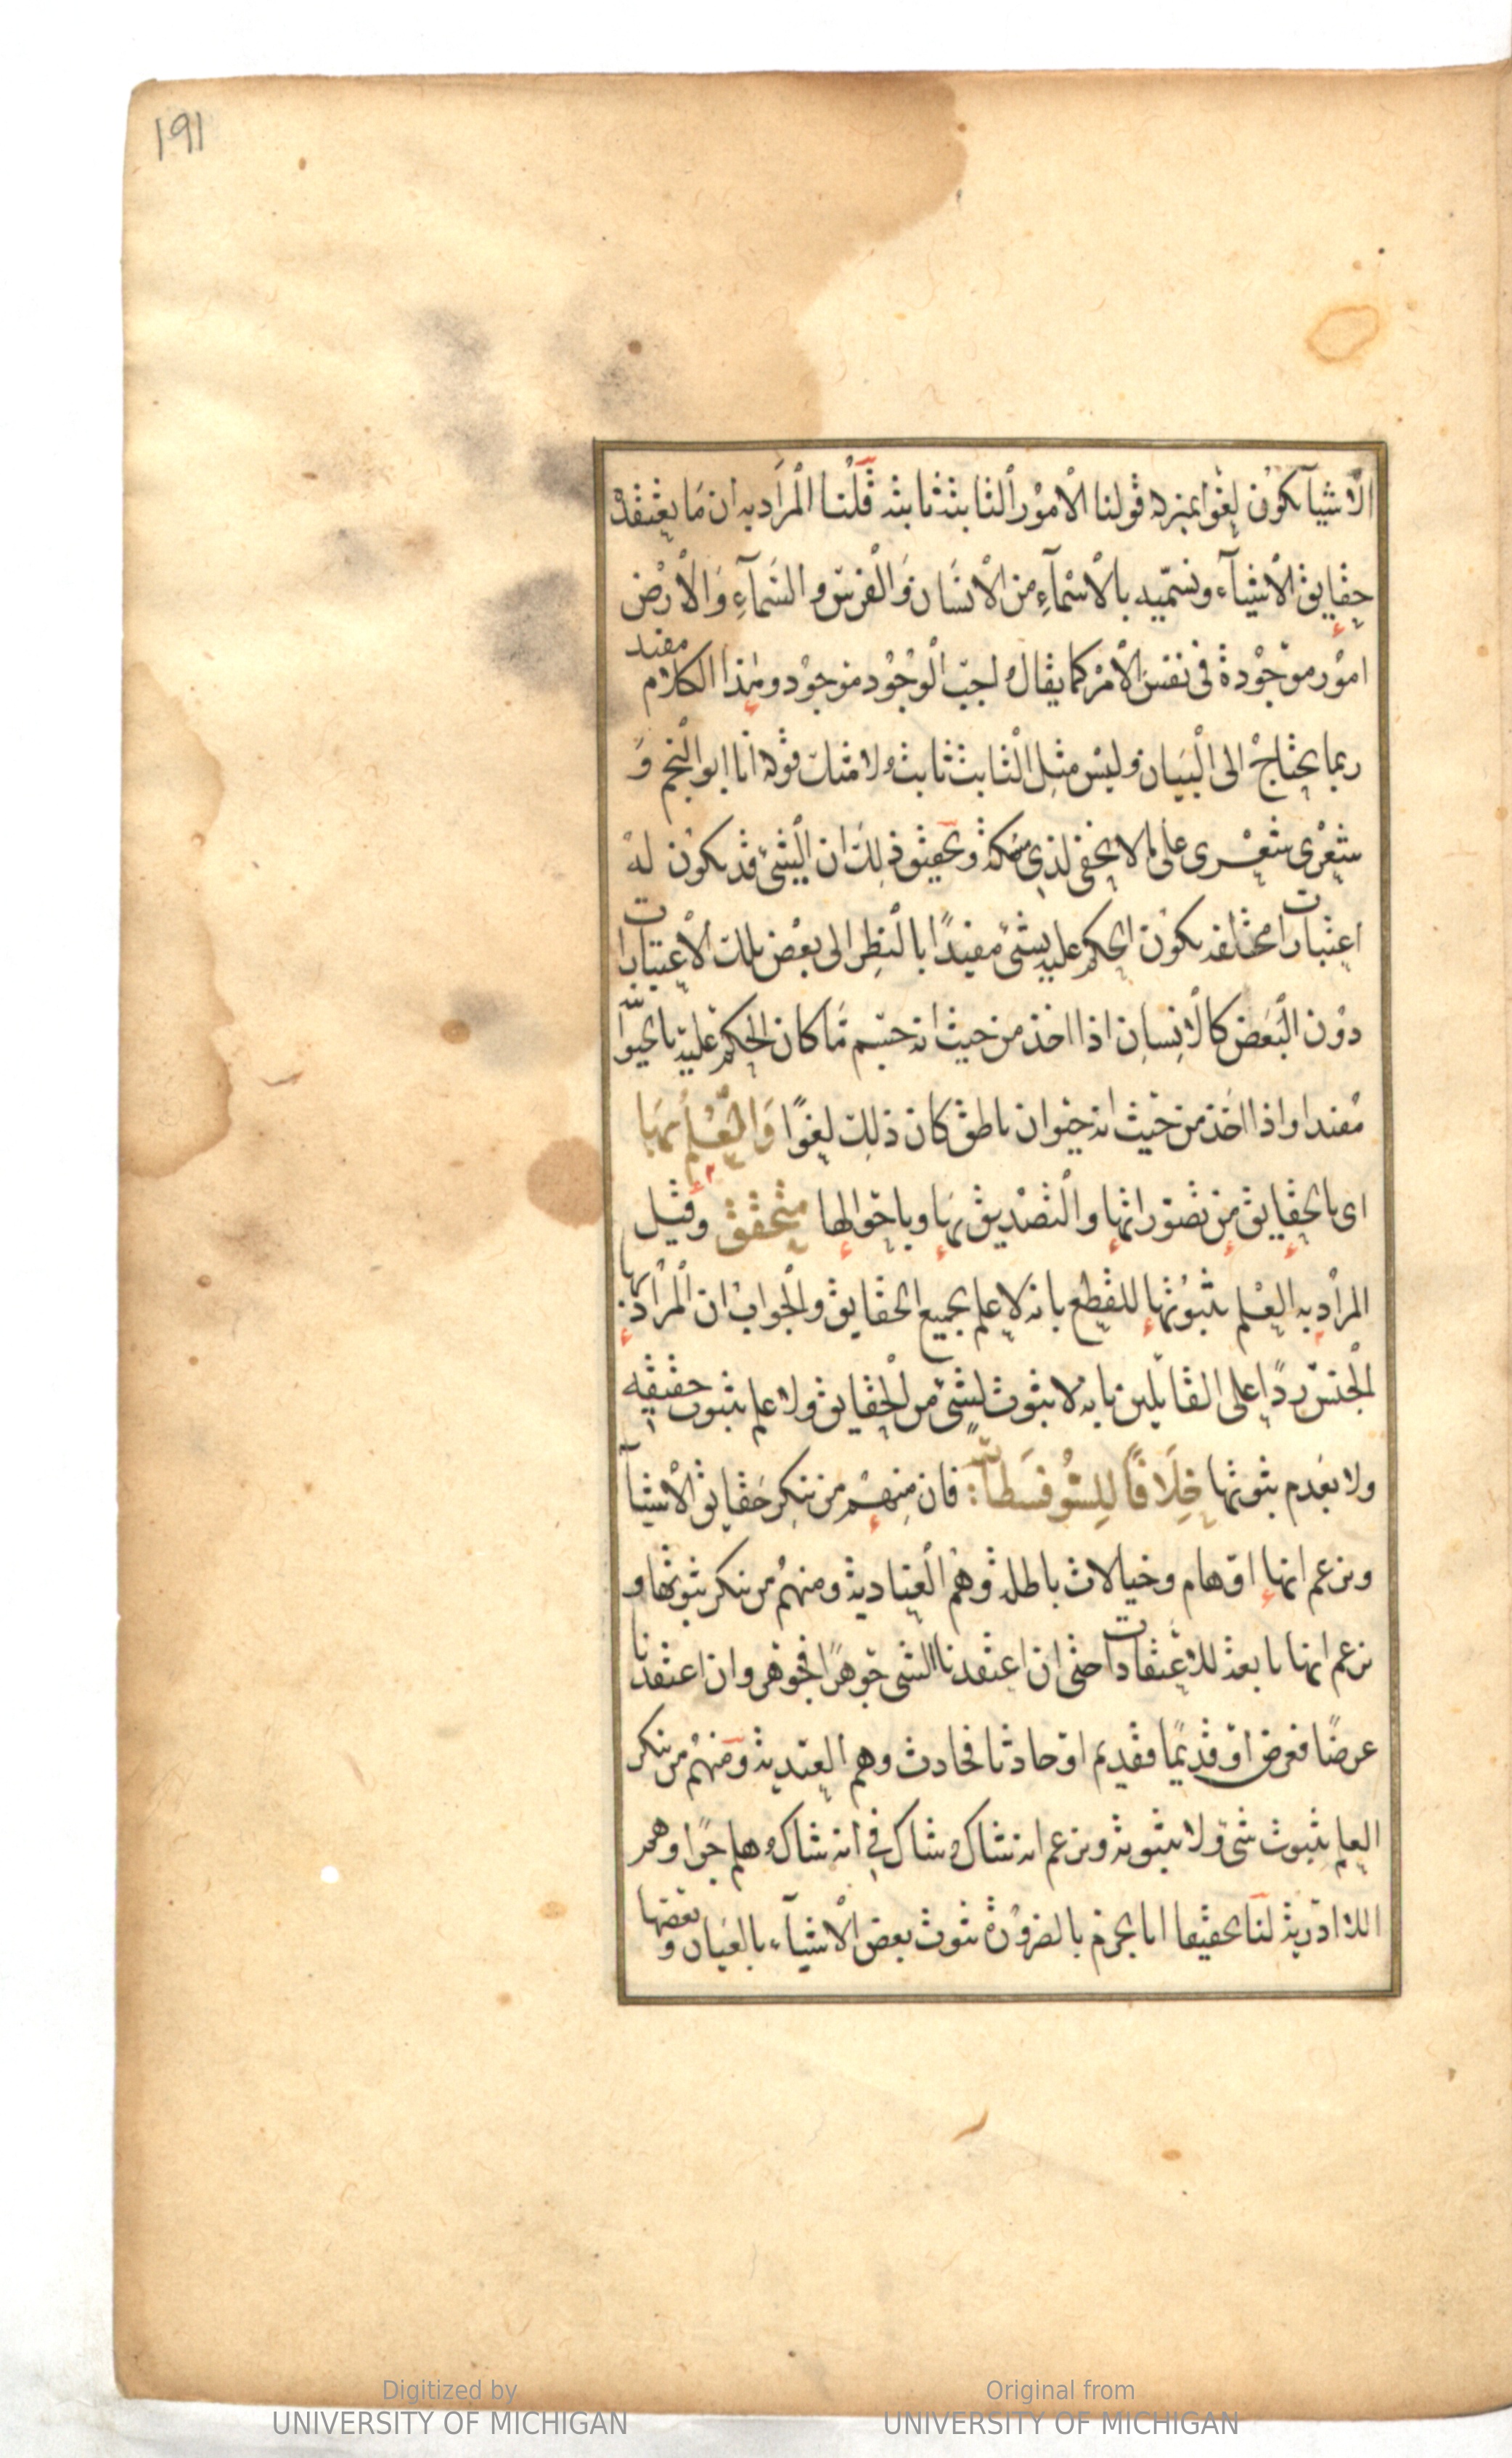 191
الاشيآ يكون لغوا بمنزلة قولنا الامور الثابتة ثابتة قلنا المراد به ان ما يعتقده
حقايق الاشيآء ونسميه بالاسمآء من الانسان والفرس والسمآء والارض
امور موجودة فى نفس الامر كما يقال واجب الوجود موجود وهذا الكلام مفيد
ربما يحتاج الى البيان وليس مثل الثابت ثابت ولا مثل قوله انا ابو النجم و
شعرى شعرى على ما لا يخفى لذى مسكة وتحقيق ذلك ان الشئ قد يكون له
اعتبارات مختلفة يكون الحكم عليه بشئ مفيدًا بالنظر الى بعض تلك الاعتبارات
دون البعض كالانسان اذا اخذ من حيث انه جسم ما كان الحكم عليه بالحيوانية
مفيدا واذا اخذ من حيث انه حيوان ناطق كان ذلك لغوًا وَالْعِلْمُ بِهَا
اى بالحقايق من تصوراتها والتصديق بها وباحوالها متحقق وقيل
المراد به العلم بثبوتها للقطع بانه لا علم بجميع الحقايق والجواب ان المراد بها
الجنس ردًا على القائلين بانه لا ثبوت لشئ من الحقايق ولا علم بثبوت حقيقه
ولا بعدم ثبوتها خِلَافًا لِلسُّوفَسَطَائية فان منهم من ينكر حقايق الاشيآ
ويزعم انها اوهام وخيالات باطلة وهم العنادية ومنهم من ينكر ثبوتها و
يزعم انها تابعة للاعتقادات حتى ان اعتقدنا الشى جوهرًا فجوهر وان اعتقدنا
عرضًا فعرض او قديمًا فقديم او حادثا فحادث وهم العندية ومنهم من ينكر
العلم بثبوت شئ ولا ثبوته ويزعم انه شاك وشاك فى انه شاك وهلم جرا وهم
اللاادرية لنا تحقيقا انا نجزم بالضرورة ثبوت بعض الاشيآء بالعيان و بعضها
Digitized by
UNIVERSITY OF MICHIGAN
Original from
UNIVERSITY OF MICHIGAN